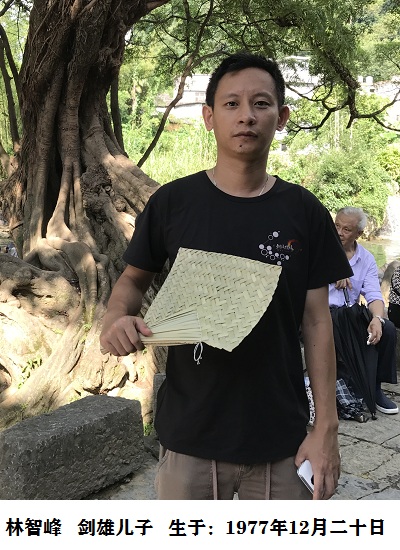 林智峰 剑雄儿子 生于：1977年12月二十日